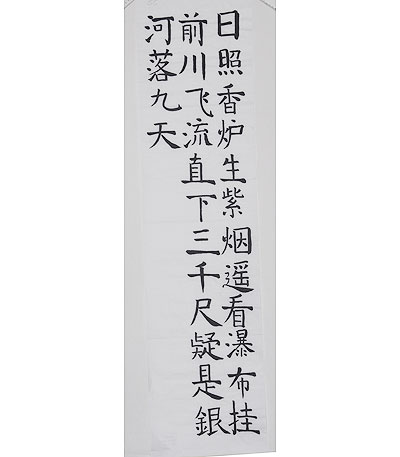 日照香炉生紫烟遥看瀑布挂
前川飞流直下三千尺疑是銀
河落九天